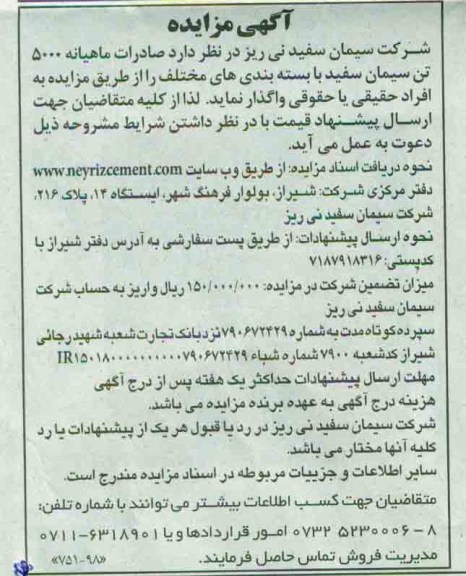 آگهی مزایده
شرکت سیمان سفید نی ریز در نظر دارد صادرات ماهیانه ۵۰۰۰
تن سیمان سفید با بسته بندی های مختلف را از طریق مزایده به
افراد حقیقی یا حقوقی واگذار نماید. لذا از کلیه متقاضیان جهت
ارسال پیشنهاد قیمت با در نظر داشتن شرایط مشروحه ذیل
دعوت به عمل می آید.
نحوه دریافت اسناد مزایده: از طریق وب سایت www.neyrizcement.com
دفتر مرکزی شرکت: شیراز، بولوار فرهنگ شهر، ایستگاه ۱۴، پلاک ۲۱۶،
شرکت سیمان سفید نی ریز
نحوه ارسال پیشنهادات: از طریق پست سفارشی به آدرس دفتر شیراز با
کدپستی: ۷۱۸۷۹۱۸۳۱۶
میزان تضمین شرکت در مزایده: ۱۵۰/۰۰۰/۰۰۰ ریال واریز به حساب شرکت
سیمان سفید نی ریز
سپرده کوتاه مدت به شماره ۷۹۰۶۷۲۴۲۹ نزد بانک تجارت شعبه شهید رجائی
شیراز کدشعبه ۷۹۰۰ شماره شباء IR۱۵۰۱۸۰۰۰۰۰۰۰۰۰۰۷۹۰۶۷۲۴۲۹
مهلت ارسال پیشنهادات حداکثر یک هفته پس از درج آگهی
هزینه درج آگهی به عهده برنده مزایده می باشد.
شرکت سیمان سفید نی ریز در رد یا قبول هر یک از پیشنهادات یا رد
کلیه آنها مختار می باشد.
سایر اطلاعات و جزییات مربوطه در اسناد مزایده مندرج است.
متقاضیان جهت کسب اطلاعات بیشتر می توانند با شماره تلفن:
۸ - ۵۲۳۰۰۰۶ ۰۷۳۲ امور قراردادها و یا ۶۳۱۸۹۰۱-۰۷۱۱
مدیریت فروش تماس حاصل فرمایند.
«۷۵۱-۹۸»